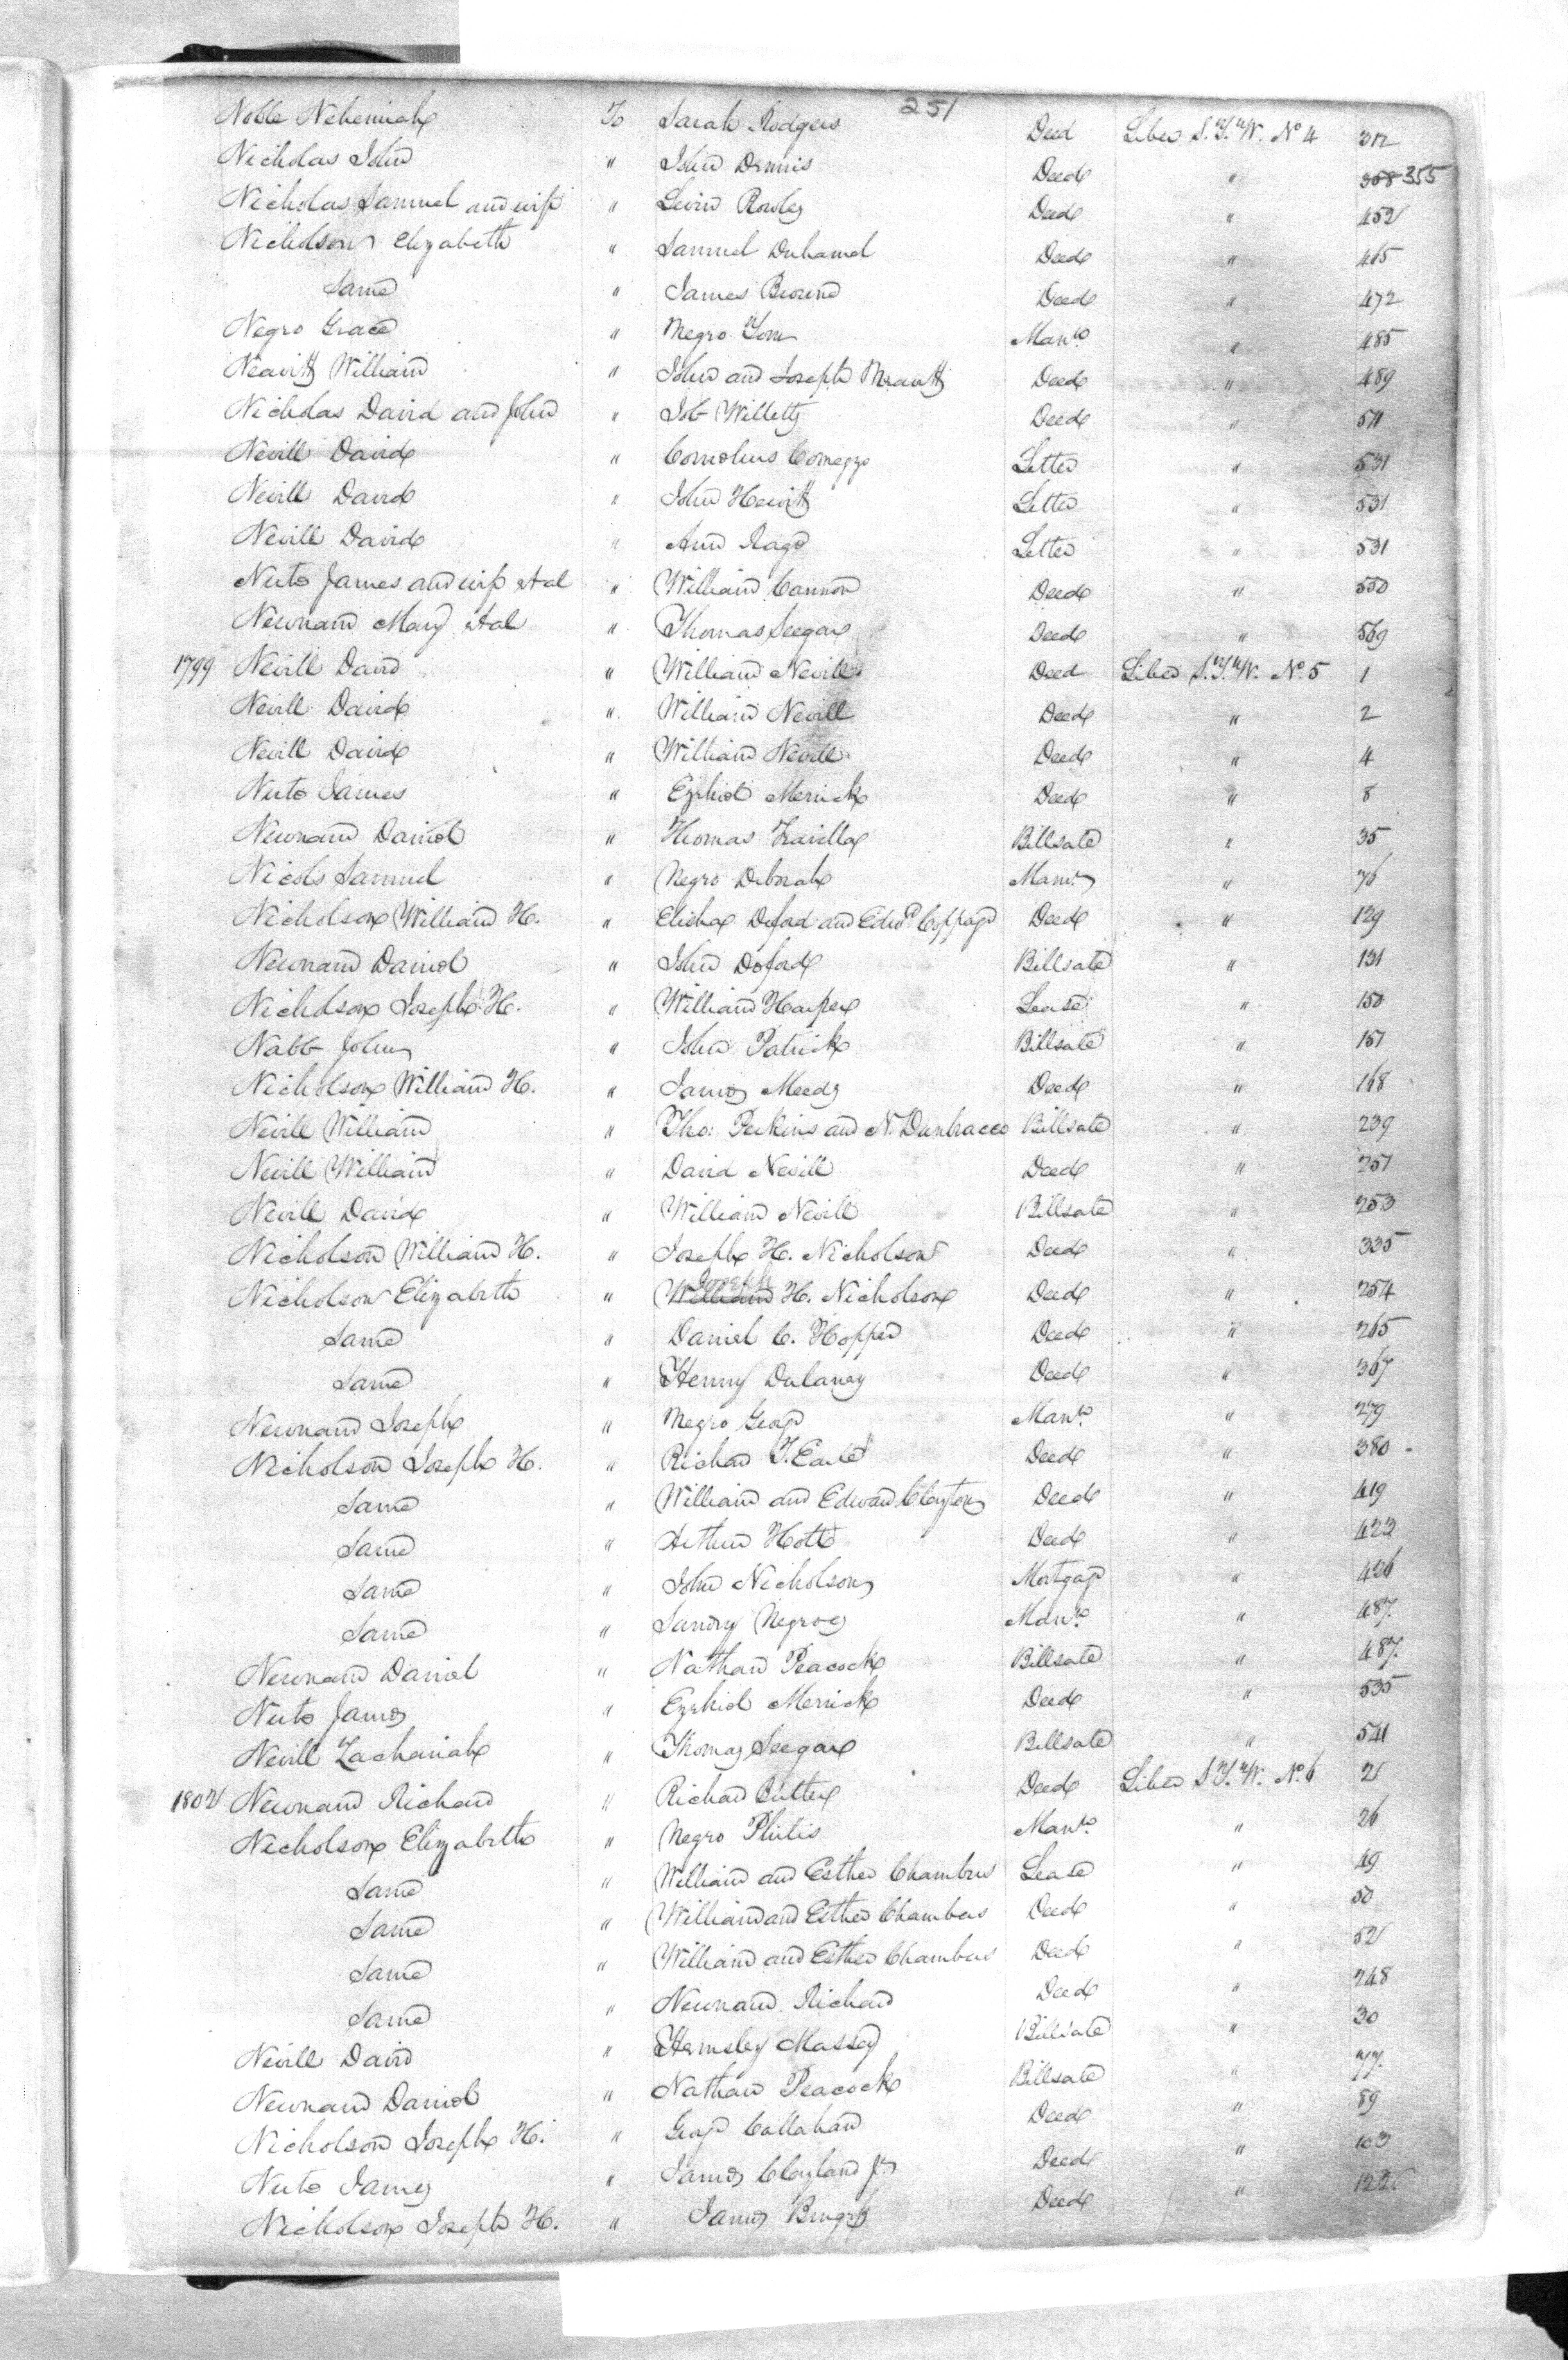 251
Noble Nehemiah To Sarah Rodgers Deed Liber S.T.W. No 4 312
Nicholas John " John Dennis Deed " 355
Nicholas Samuel and wife " Levin Rowley Deed " 452
Nicholson Elizabeth " Samuel Duhamel Deed " 465
Same " James Browne Deed " 472
Negro Grace " Negro Tom Manro " 485
Neavitt William " John and Joseph Neavitt Deed " 489
Nicholas David and John " Job Willetty Deed " 511
Nevill David " Cornelius Comegys Letter " 531
Nevill David " John Hewitt Letter " 531
Nevill David " Ann Letter " 531
James and wife etal " William Cannon Deed " 550
Newnam Mary etal " Thomas Seegar Deed " 569
1799 Nevill David " William Nevill Deed Liber S.T.W. No. 5 1
Nevill David " William Nevill Deed " 2
Nevill David " William Nevill Deed " 4
James " Ezekiel Merrick Deed " 8
Newnam Daniel " Thomas Travilla Billsale " 35
Nicols Samuel " Negro Deborah " 76
Nicholson William H. " Elisha Deford and Edwd. Coppage Deed " 129
Newnam Daniel " John Deford Billsale " 131
Nicholson Joseph H. " William Harper Lease " 150
Nabb John " John Patrick Billsale " 151
Nicholson William H. " James Meeds Deed " 168
Nevill William " Tho: Perkins and N. Dunbracco Billsale " 239
Nevill William " David Nevill Deed " 251
Nevill David " William Nevill Billsale " 253
Nicholson William H. " Joseph H. Nicholson Deed " 335
Nicholson Elizabeth " William Joseph H. Nicholson Deed " 254
Same " Daniel C. Hopper Deed " 265
Same " Henny Dulaney Deed " 367
Newnam Joseph " Negro George Manro " 279
Nicholson Joseph H. " Richard T. Earle Deed " 380
Same " William and Edward Clayton Deed " 419
Same " Arthur Holt Deed " 423
Same " John Nicholson Mortgage " 426
Same " Sundry Negroes Manro " 487
Newnam Daniel " Nathan Peacock Billsale " 487
James " Ezekiel Merrick Deed " 535
Nevill Zachariah " Thomas Seegar Billsale " 541
1802 Newnam Richard " Richard Butler Deed Liber S.T.W. No. 6 2
Nicholson Elizabeth " Negro Philis Manro " 26
Same " William and Esther Chambers Lease " 49
Same " William and Esther Chambers Deed " 50
Same " William and Esther Chambers Deed " 52
Same " Newnam Richard Deed " 248
Nevill David " Hemsley Massey Billsale " 30
Newnam Daniel " Nathan Peacock Billsale " 77
Nicholson Joseph H. " George Callahan Deed " 89
James " James Clayland Jr Deed " 103
Nicholson Joseph H. " James Deed "